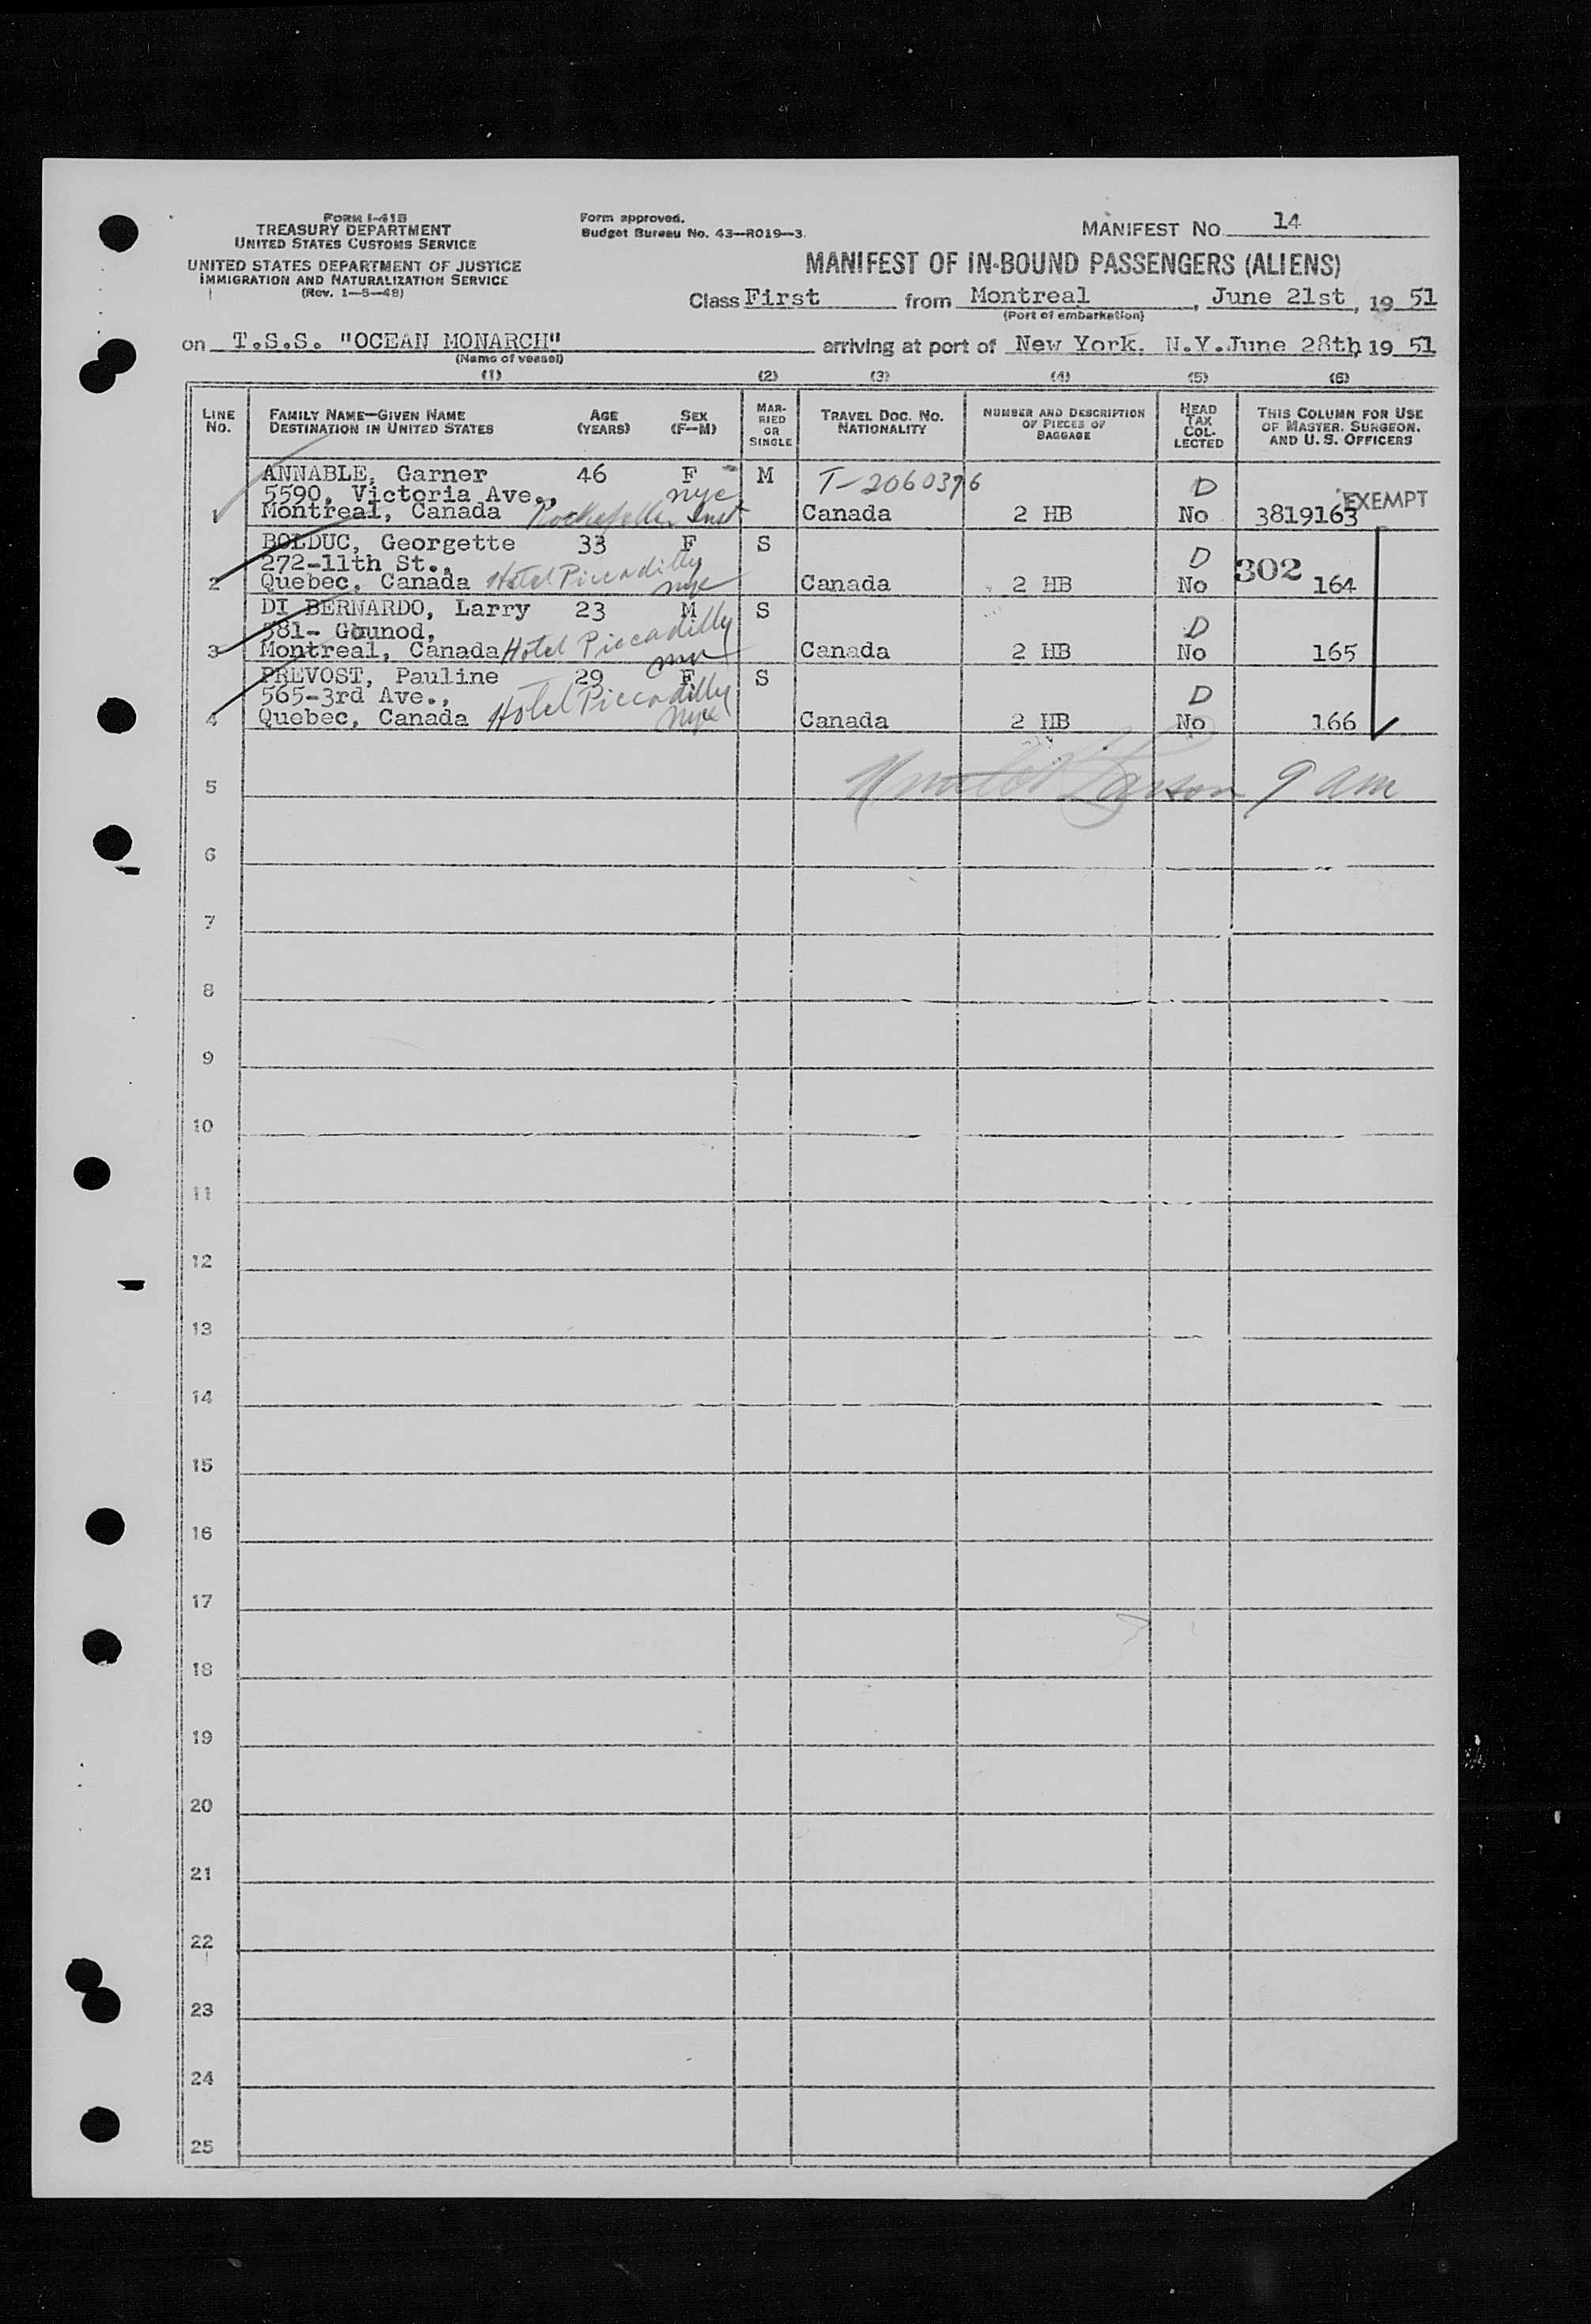 FORM I-418
TREASURY DEPARTMENT
UNITED STATES CUSTOMS SERVICE
UNITED STATES DEPARTMENT OF JUSTICE
IMMIGRATION AND NATURALIZATION SERVICE
(Rev. 1-5-48)
Form approved.
Budget Bureau No. 43-R019-3.
MANIFEST NO. 14
MANIFEST OF IN-BOUND PASSENGERS (ALIENS)
Class First from Montreal, June 21st, 19 51
(Port of embarkation)
on T.S.S. "OCEAN MONARCH" arriving at port of New York, N.Y. June 28th, 19 51
(Name of vessel)
(1) (2) (3) (4) (5) (6)
LINE NO.
FAMILY NAME—GIVEN NAME DESTINATION IN UNITED STATES
AGE (YEARS)
SEX (F—M)
MARRIED OR SINGLE
TRAVEL DOC. NO. NATIONALITY
NUMBER AND DESCRIPTION OF PIECES OF BAGGAGE
HEAD TAX COLLECTED
THIS COLUMN FOR USE OF MASTER, SURGEON, AND U. S. OFFICERS
ANNABLE, Garner 46 F M T-2060376 D
5590, Victoria Ave., nyc EXEMPT
1 Montreal, Canada Rockefeller Inst Canada 2 HB No 3819163
BOLDUC, Georgette 33 F S
272-11th St., D 302
2 Quebec, Canada Hotel Piccadilly nyc Canada 2 HB No 164
DI BERNARDO, Larry 23 M S
381- Gounod, D
3 Montreal, Canada Hotel Piccadilly Canada 2 HB No 165
PREVOST, Pauline 29 F S
565-3rd Ave., D
4 Quebec, Canada Hotel Piccadilly nyc Canada 2 HB No 166
5 9 am
6
7
8
9
10
11
12
13
14
15
16
17
18
19
20
21
22
23
24
25